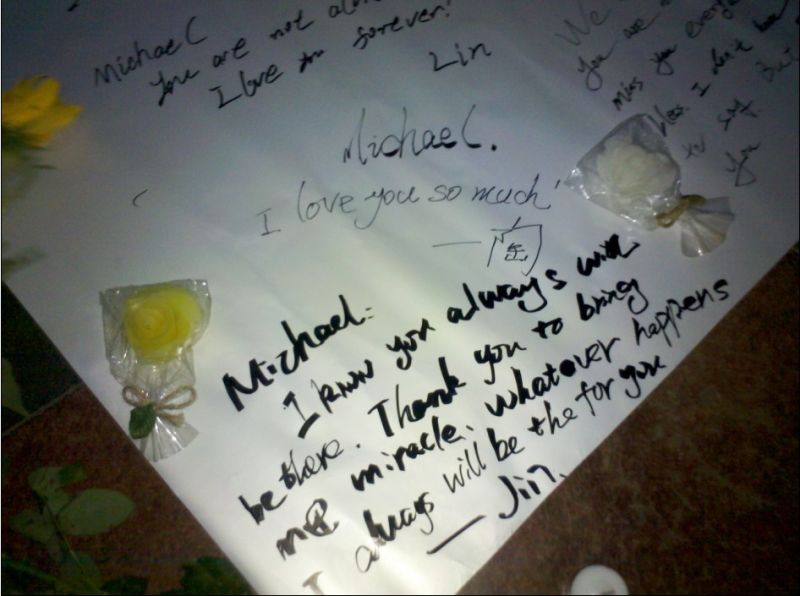 Michael
You are not alone
I love you forever!
Lin
We
You are
miss you every
bless. I don't
to say. But
you
Michael.
I love you so much!
Michael:
I know you always will
be there. Thank you to bring
me miracle. Whatever happens
I always will be the for you
— Jin.